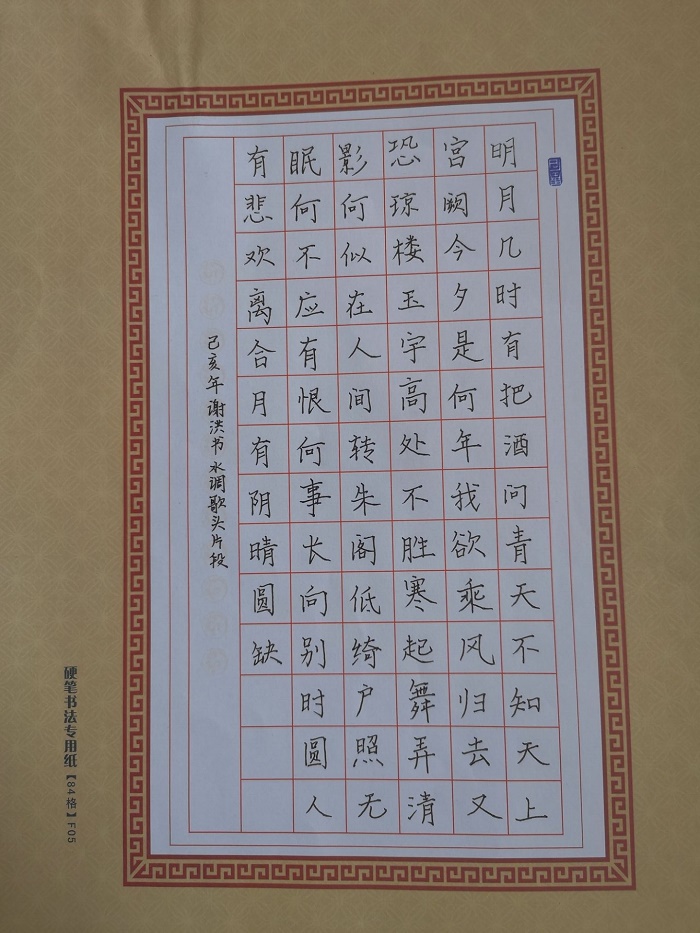 明月几时有把酒问青天不知天上
宫阙今夕是何年我欲乘风归去又
恐琼楼玉宇高处不胜寒起舞弄清
影何似在人间转朱阁低绮户照无
眠何不应有恨何事长向别时圆人
有悲欢离合月有阴晴圆缺
己亥年谢洪书水调歌头片段
硬笔书法专用纸【84格】F05